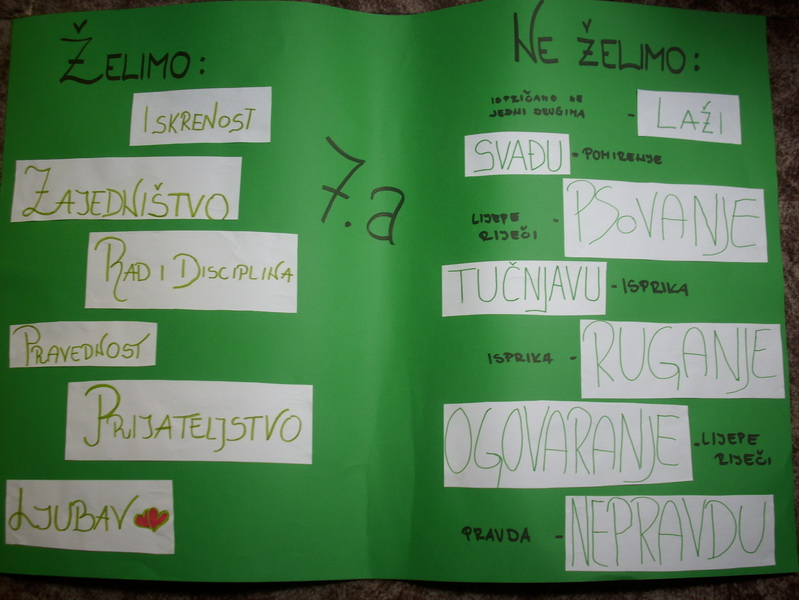 Želimo:
Iskrenost
Zajedništvo
Rad i Disciplina
Pravednost
Prijateljstvo
Ljubav
7.a
Ne želimo:
ispričamo se
jedni drugima - Laži
Svađu - pomirenje
lijepe
riječi - Psovanje
Tučnjavu - isprika
isprika - Ruganje
Ogovaranje - lijepe
riječi
pravda - Nepravdu